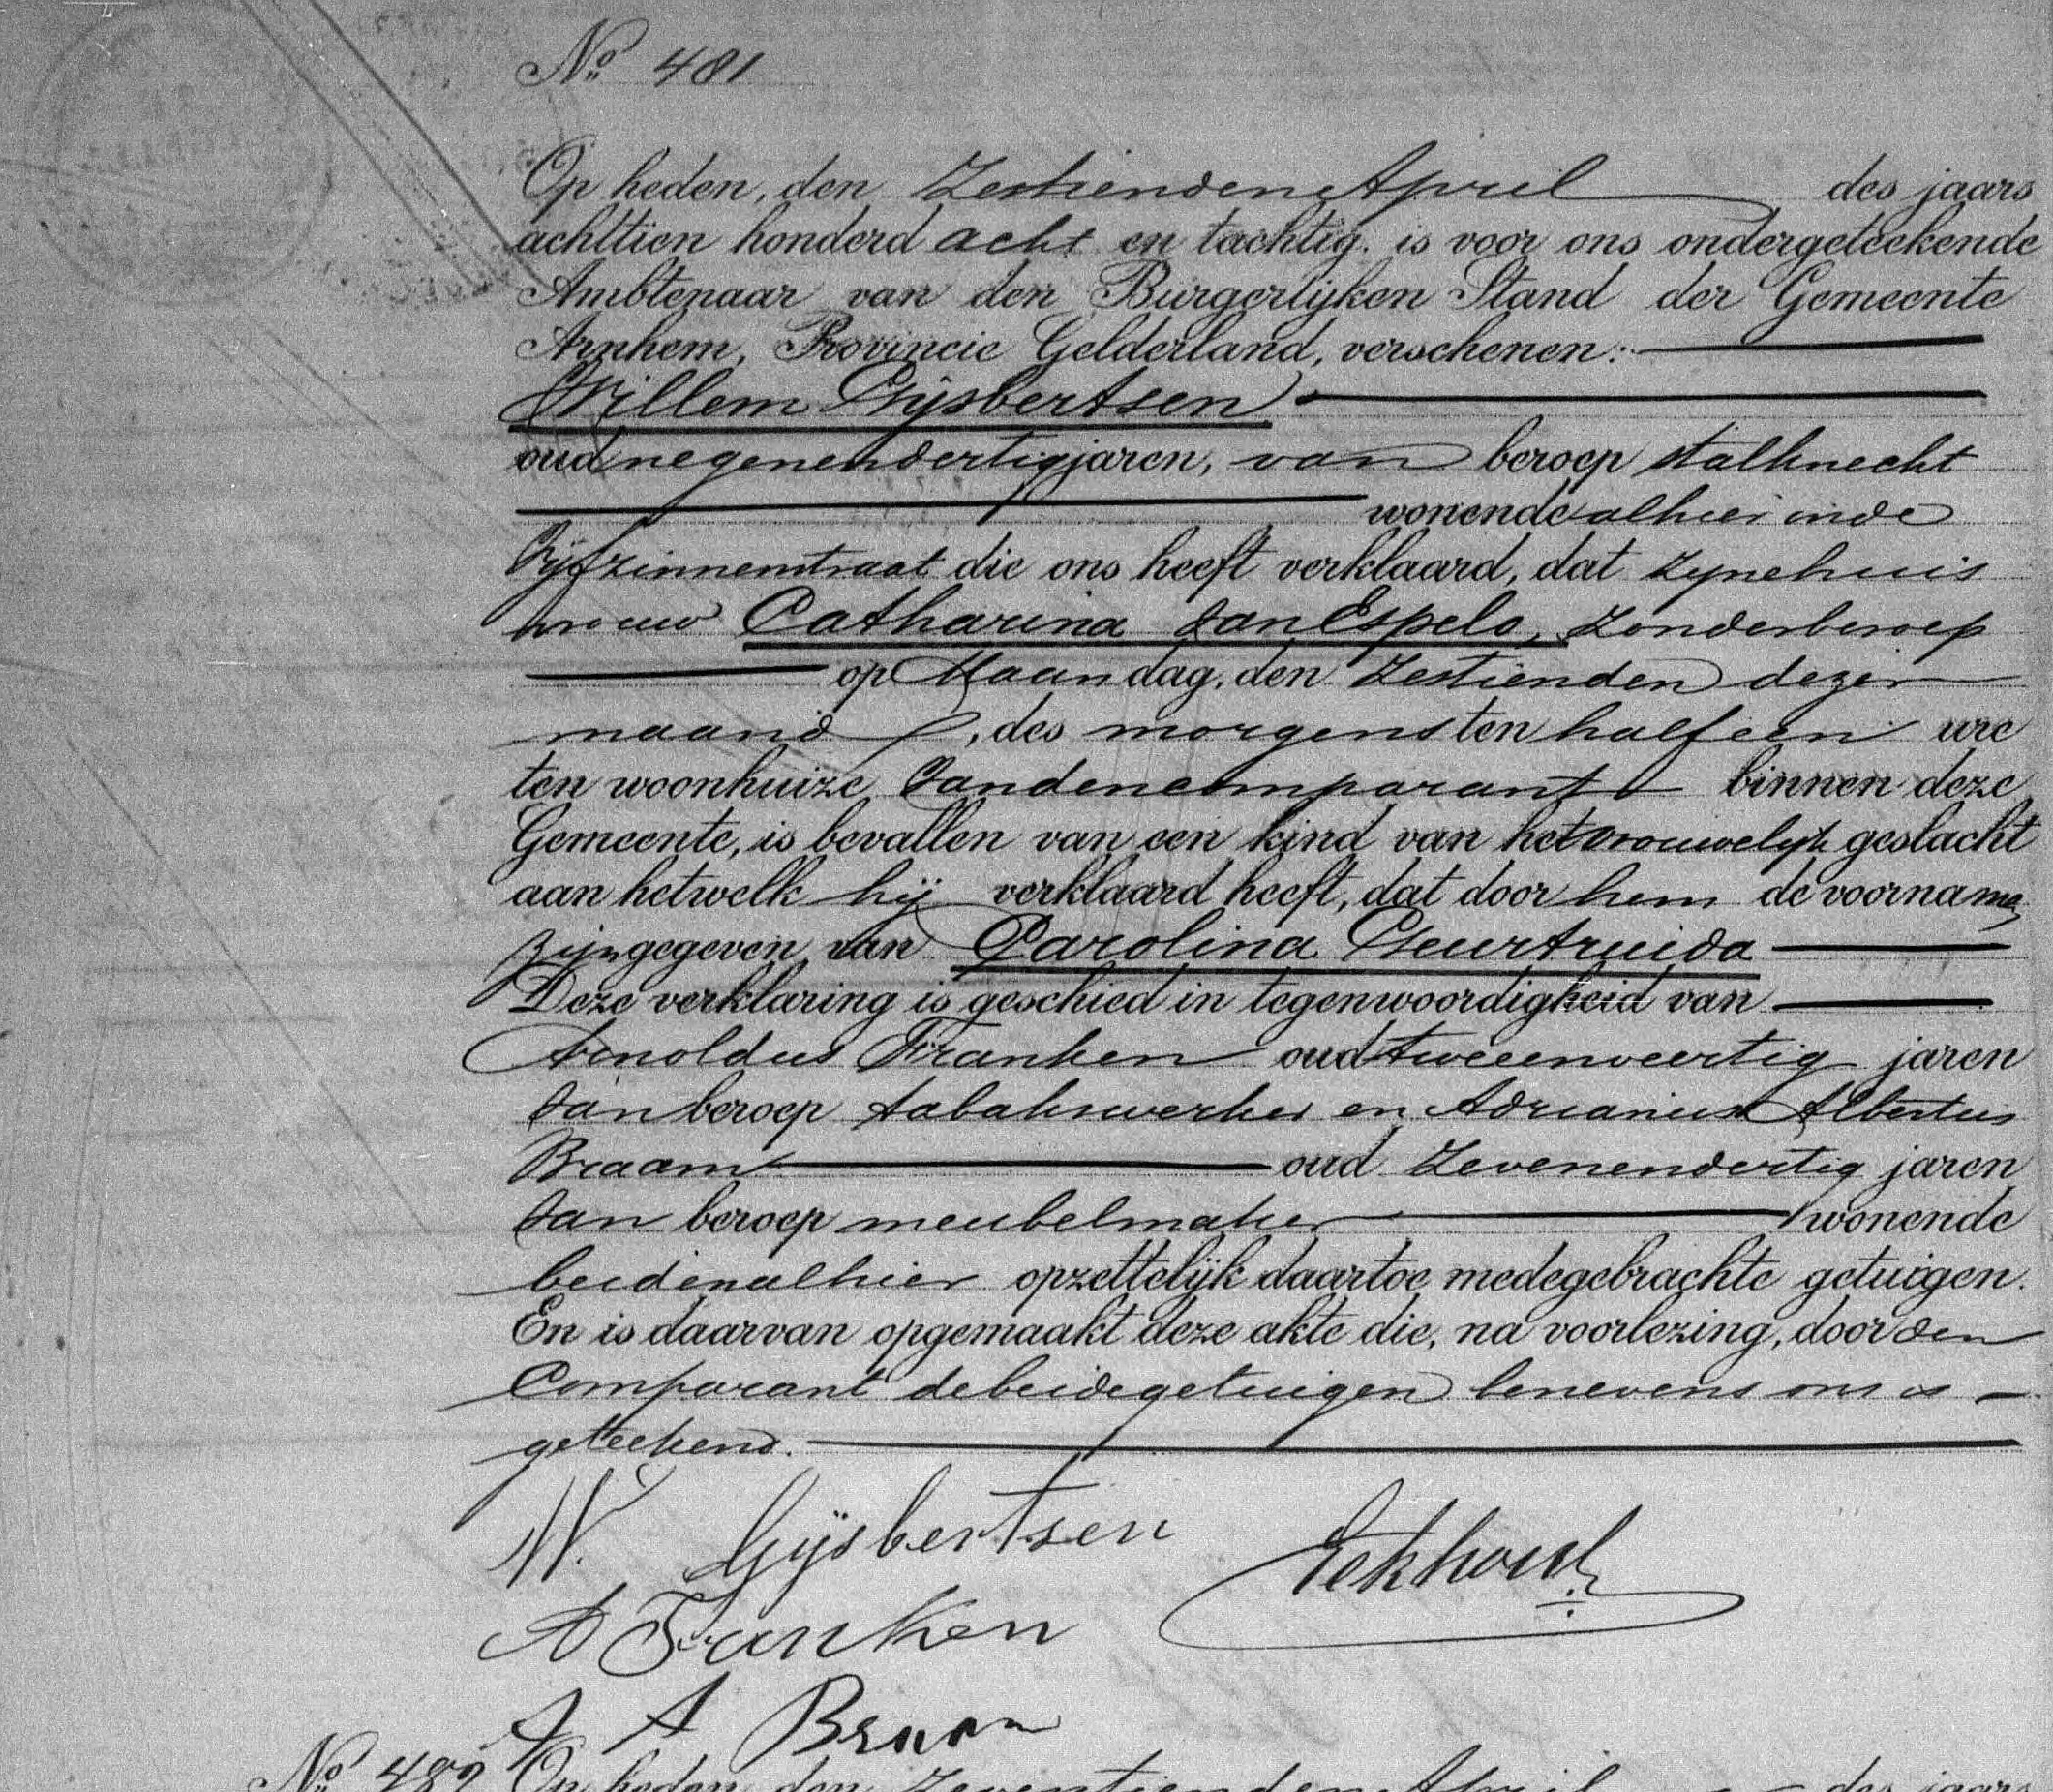 No. 481
Op heden, den Zestienden April des jaars
achttien honderd acht en tachtig. is voor ons ondergeteekende
Ambtenaar van den Burgerlijken Stand der Gemeente
Arnhem, Provincie Gelderland, verschenen:
Willem Gijsbertsen
oud negenendertig jaren, van beroep stalknecht
wonende alhier in de
Vijfzinnenstraat die ons heeft verklaard, dat zyne huis
vrouw Catharina van Espelo, zonder beroep
op Maandag, den zestienden dezer
maand, des morgens ten half een ure
ten woonhuize van den comparant binnen deze
Gemeente, is bevallen van een kind van het vrouwelijk geslacht
aan hetwelk hij verklaard heeft, dat door hem de voorname
zijn gegeven van Carolina Geurtruida
Deze verklaring is geschied in tegenwoordigheid van
Arnoldus Franken oud tweeenveertig jaren
van beroep tabakswerker en Adrianus Albertus
Braam oud zevenendertig jaren
van beroep meubelmaker wonende
beiden alhier opzettelijk daartoe medegebrachte getuigen.
En is daarvan opgemaakt deze akte die, na voorlezing, door den
Comparant de beide getuigen benevens ons is
geteekend.
W. Gijsbertsen
Eekhout
A Franken
A A Braam
No. 482 Op heden, den zeventienden April des jaars